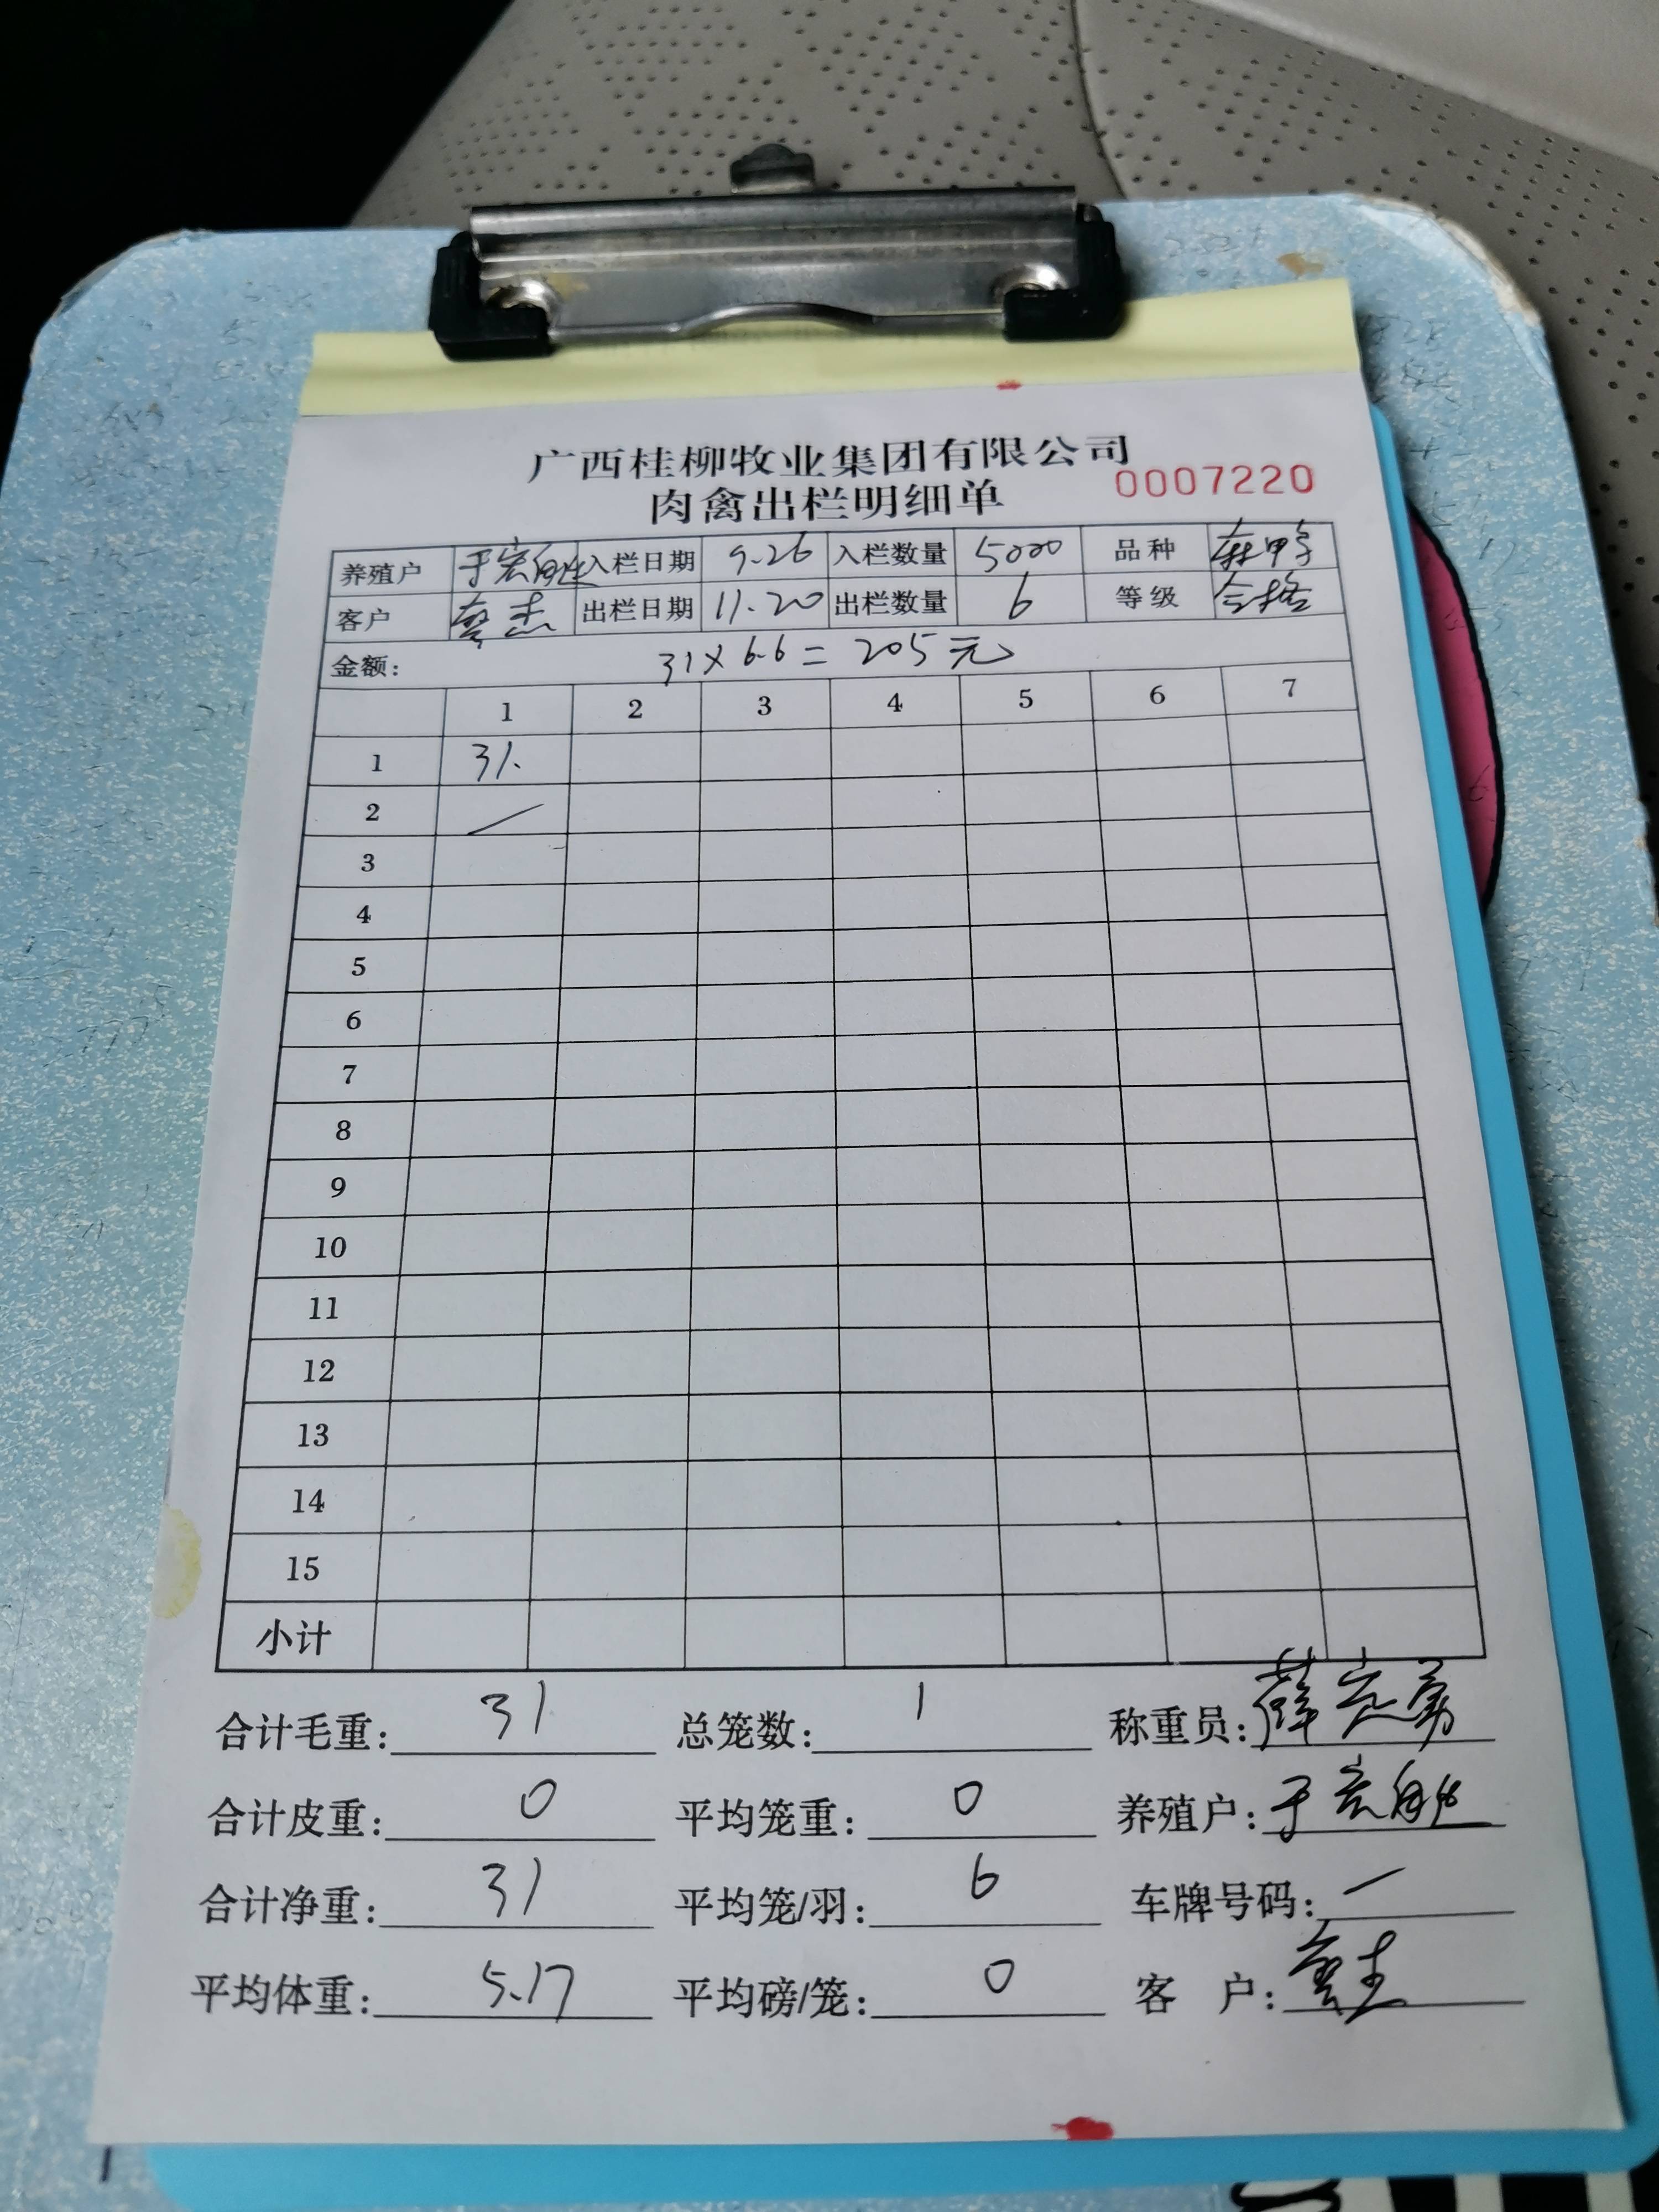 广西桂柳牧业集团有限公司
肉禽出栏明细单 0007220
养殖户 于宏胜 入栏日期 9.26 入栏数量 5000 品种 麻鸭
客户 廖志 出栏日期 11.20 出栏数量 6 等级 合格
金额: 31×6.6=205元
1 2 3 4 5 6 7
1 31.
2
3
4
5
6
7
8
9
10
11
12
13
14
15
小计
合计毛重: 31 总笼数: 1 称重员: 薛
合计皮重: 0 平均笼重: 0 养殖户: 于宏胜
合计净重: 31 平均笼/羽: 6 车牌号码:
平均体重: 5.17 平均磅/笼: 0 客 户: 廖志